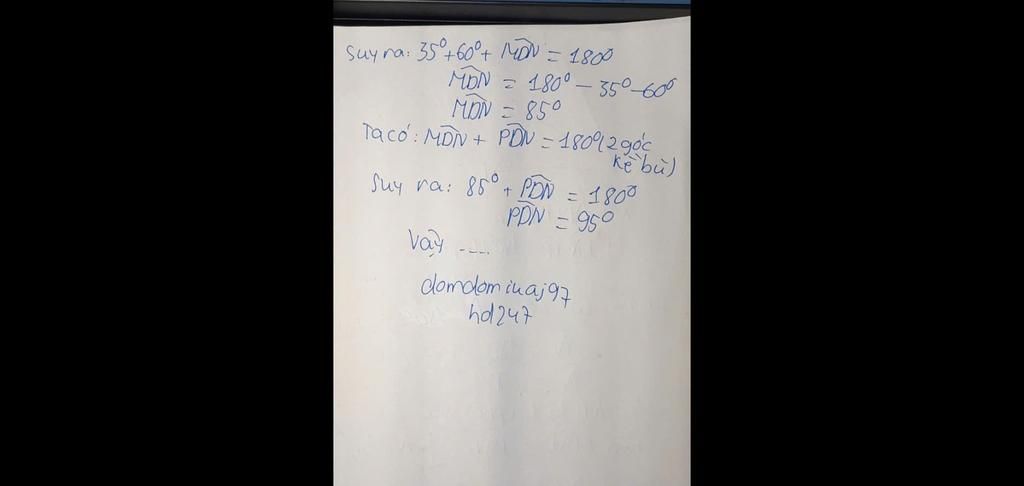 Suy ra: 35⁰+60⁰+ M̂DN = 180⁰
M̂DN = 180⁰ - 35⁰-60⁰
M̂DN = 85⁰
Ta có: M̂DN + P̂DN = 180⁰(2 góc
kề bù)
Suy ra: 85⁰ + P̂DN = 180⁰
P̂DN = 95⁰
Vậy ....
domdomiuaj97
hd247